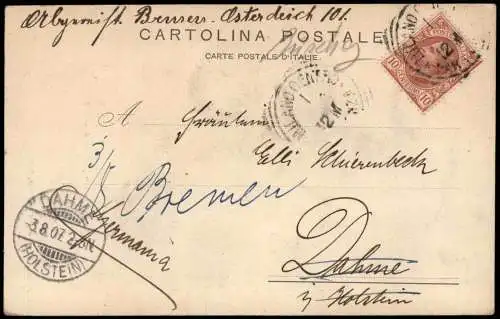 Abgereist Bremen - Osterdeich 101.
CARTOLINA POSTALE
CARTE POSTALE D'ITALIE.
A
Fräulein
Elli Schierenbeck
3/8
Bremen
Germania
Dahme
i/ Holstein
DAHME
3.8.07. 2-3N
(HOLSTEIN)
MILANO
12 M
MILANO
12
10 10